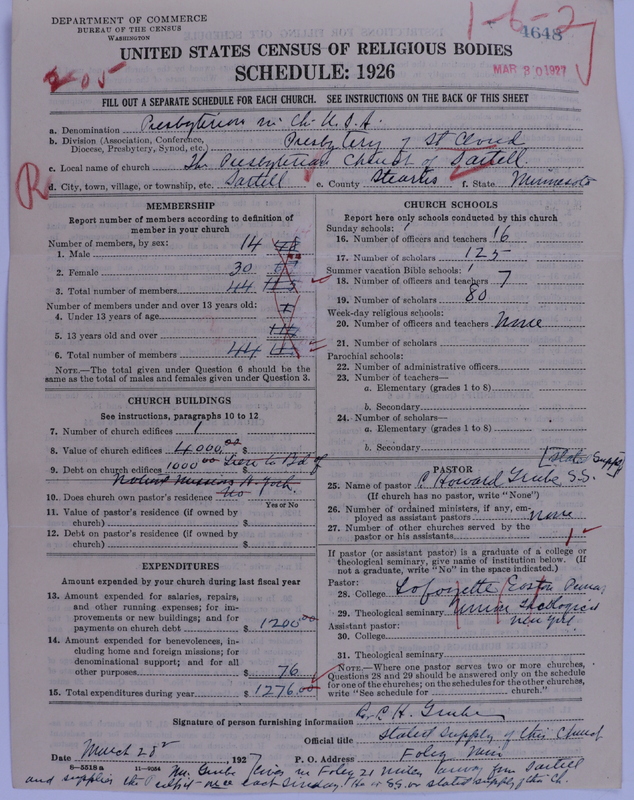 DEPARTMENT OF COMMERCE
BUREAU OF THE CENSUS
WASHINGTON
1-6-27
4648
MAR 30 1927
205
UNITED STATES CENSUS OF RELIGIOUS BODIES
SCHEDULE: 1926
FILL OUT A SEPARATE SCHEDULE FOR EACH CHURCH. SEE INSTRUCTIONS ON THE BACK OF THIS SHEET
a. Denomination Presbyterian in Ch. U.S.A.
b. Division (Association, Conference, Diocese, Presbytery, Synod, etc.) Presbytery of St Cloud
c. Local name of church The Presbyterian Church of Sartell
R
d. City, town, village, or township, etc. Sartell e. County Stearns f. State Minnesota
MEMBERSHIP
Report number of members according to definition of member in your church
Number of members, by sex:
1. Male 14
2. Female 30
3. Total number of members 44
Number of members under and over 13 years old:
4. Under 13 years of age
5. 13 years old and over
6. Total number of members 44
NOTE.—The total given under Question 6 should be the same as the total of males and females given under Question 3.
CHURCH BUILDINGS
See instructions, paragraphs 10 to 12
7. Number of church edifices 1
8. Value of church edifices $ 4000.00
9. Debt on church edifices $ 1000.00 Due to Bd of
Missions N. York.
10. Does church own pastor's residence No
Yes or No
11. Value of pastor's residence (if owned by church) $
12. Debt on pastor's residence (if owned by church) $
EXPENDITURES
Amount expended by your church during last fiscal year
13. Amount expended for salaries, repairs, and other running expenses; for improvements or new buildings; and for payments on church debt $ 1200.00
14. Amount expended for benevolences, including home and foreign missions; for denominational support; and for all other purposes $ 76
15. Total expenditures during year $ 1276.00
CHURCH SCHOOLS
Report here only schools conducted by this church
Sunday schools: 1
16. Number of officers and teachers 16
17. Number of scholars 125
Summer vacation Bible schools: 1
18. Number of officers and teachers 7
19. Number of scholars 80
Week-day religious schools:
20. Number of officers and teachers None
21. Number of scholars
Parochial schools:
22. Number of administrative officers
23. Number of teachers—
a. Elementary (grades 1 to 8)
b. Secondary
24. Number of scholars—
a. Elementary (grades 1 to 8)
b. Secondary
PASTOR
[Stated Supply]
25. Name of pastor C Howard Grube S.S.
(If church has no pastor, write "None")
26. Number of ordained ministers, if any, employed as assistant pastors none
27. Number of other churches served by the pastor or his assistants 1
If pastor (or assistant pastor) is a graduate of a college or theological seminary, give name of institution below. (If not a graduate, write "No" in the space indicated.)
Pastor:
28. College Lafayette Easton Penna
29. Theological seminary Union Theological
New York
Assistant pastor:
30. College
31. Theological seminary
NOTE.—Where one pastor serves two or more churches, Questions 28 and 29 should be answered only on the schedule for one of the churches; on the schedules for the other churches, write "See schedule for church."
Signature of person furnishing information C. H. Grube
Official title Stated Supply of this Church
Date March 28 1927 P. O. Address Foley Min
8—5518 a 11—9084
Mr. Grube lives in Foley 21 miles away from Sartell
and supplies the Pulpit once each Sunday. He is SS. or stated supply of the Ch.